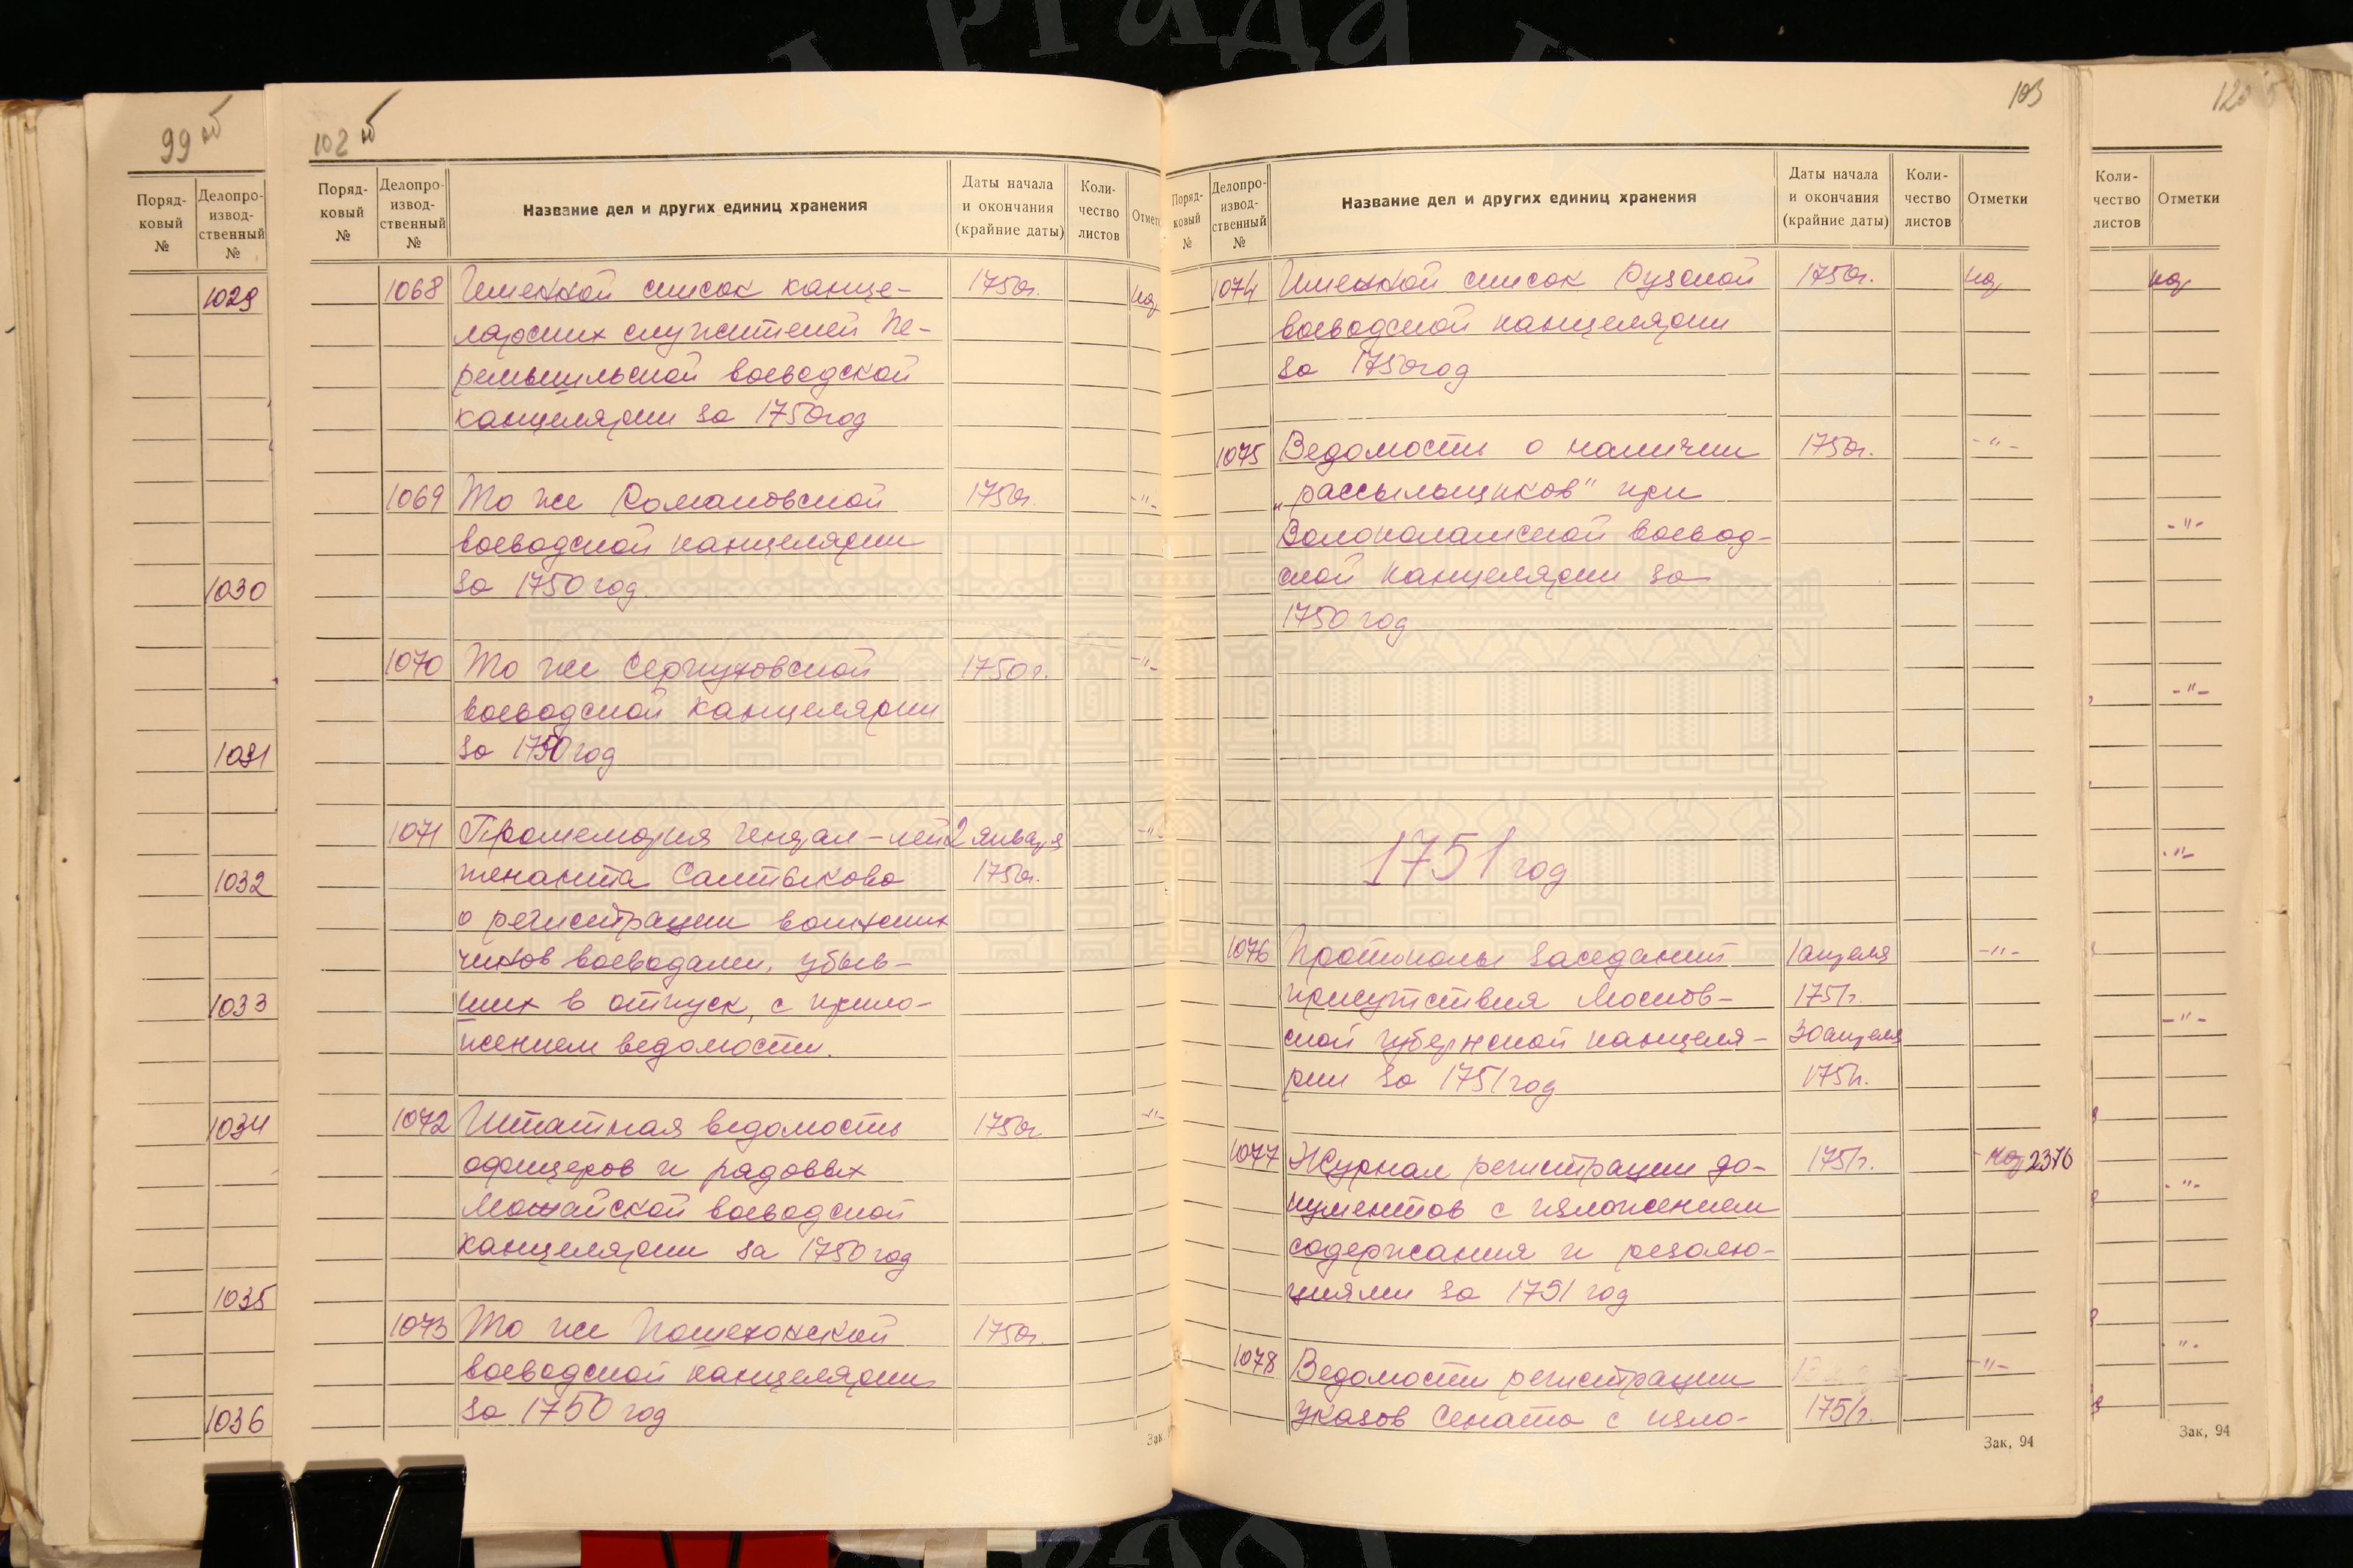 99 об
Поряд-
ковый
№
Делопро-
извод-
ственный
№
1029
1030
1031
1032
1033
1034
1035
1036
102 об
Поряд-
ковый
№
Делопро-
извод-
ственный
№
Название дел и других единиц хранения
Даты начала
и окончания
(крайние даты)
Коли-
чество
листов
Отметк
1068 Именной список канце- 1750г.
лярских служителей Пе-
ремышльской воеводской
канцелярии за 1750 год
1069 То же Романовской 1750г. -"-
воеводской канцелярии
за 1750 год
1070 То же Серпуховской 1750г. -"-
воеводской канцелярии
за 1750 год
1071 Промемория генерал-лей- 2 января -"-
тенанта Салтыкова 1750г.
о регистрации воинских
чинов воеводами, убыв-
ших в отпуск, с прило-
жением ведомости.
1072 Штатная ведомость 1750г -"-
офицеров и рядовых
Можайской воеводской
канцелярии за 1750 год
1073 То же Пошехонской 1750г.
воеводской канцелярии
за 1750 год
Зак.
103
Поряд-
ковый
№
Делопро-
извод-
ственный
№
Название дел и других единиц хранения
Даты начала
и окончания
(крайние даты)
Коли-
чество
листов
Отметки
1074 Именной список Рузской 1750г.
воеводской канцелярии
за 1750 год
1075 Ведомости о наличии 1750г. -"-
„рассыльщиков" при
Волоколамской воевод-
ской канцелярии за
1750 год
1751 год
1076 Протоколы заседаний 1 апреля -"-
присутствия Москов- 1751г.
ской губернской канцеля- 30 апреля
рии за 1751 год 1751г.
1077 Журнал регистрации до- 1751г. 2376
кументов с изложением
содержания и резолю-
циями за 1751 год
1078 Ведомости регистрации -"-
указов Сената с изло- 1751г.
Зак. 94
Коли-
чество
листов
Отметки
-"-
-"-
-"-
-"-
-"-
-"-
Зак. 94